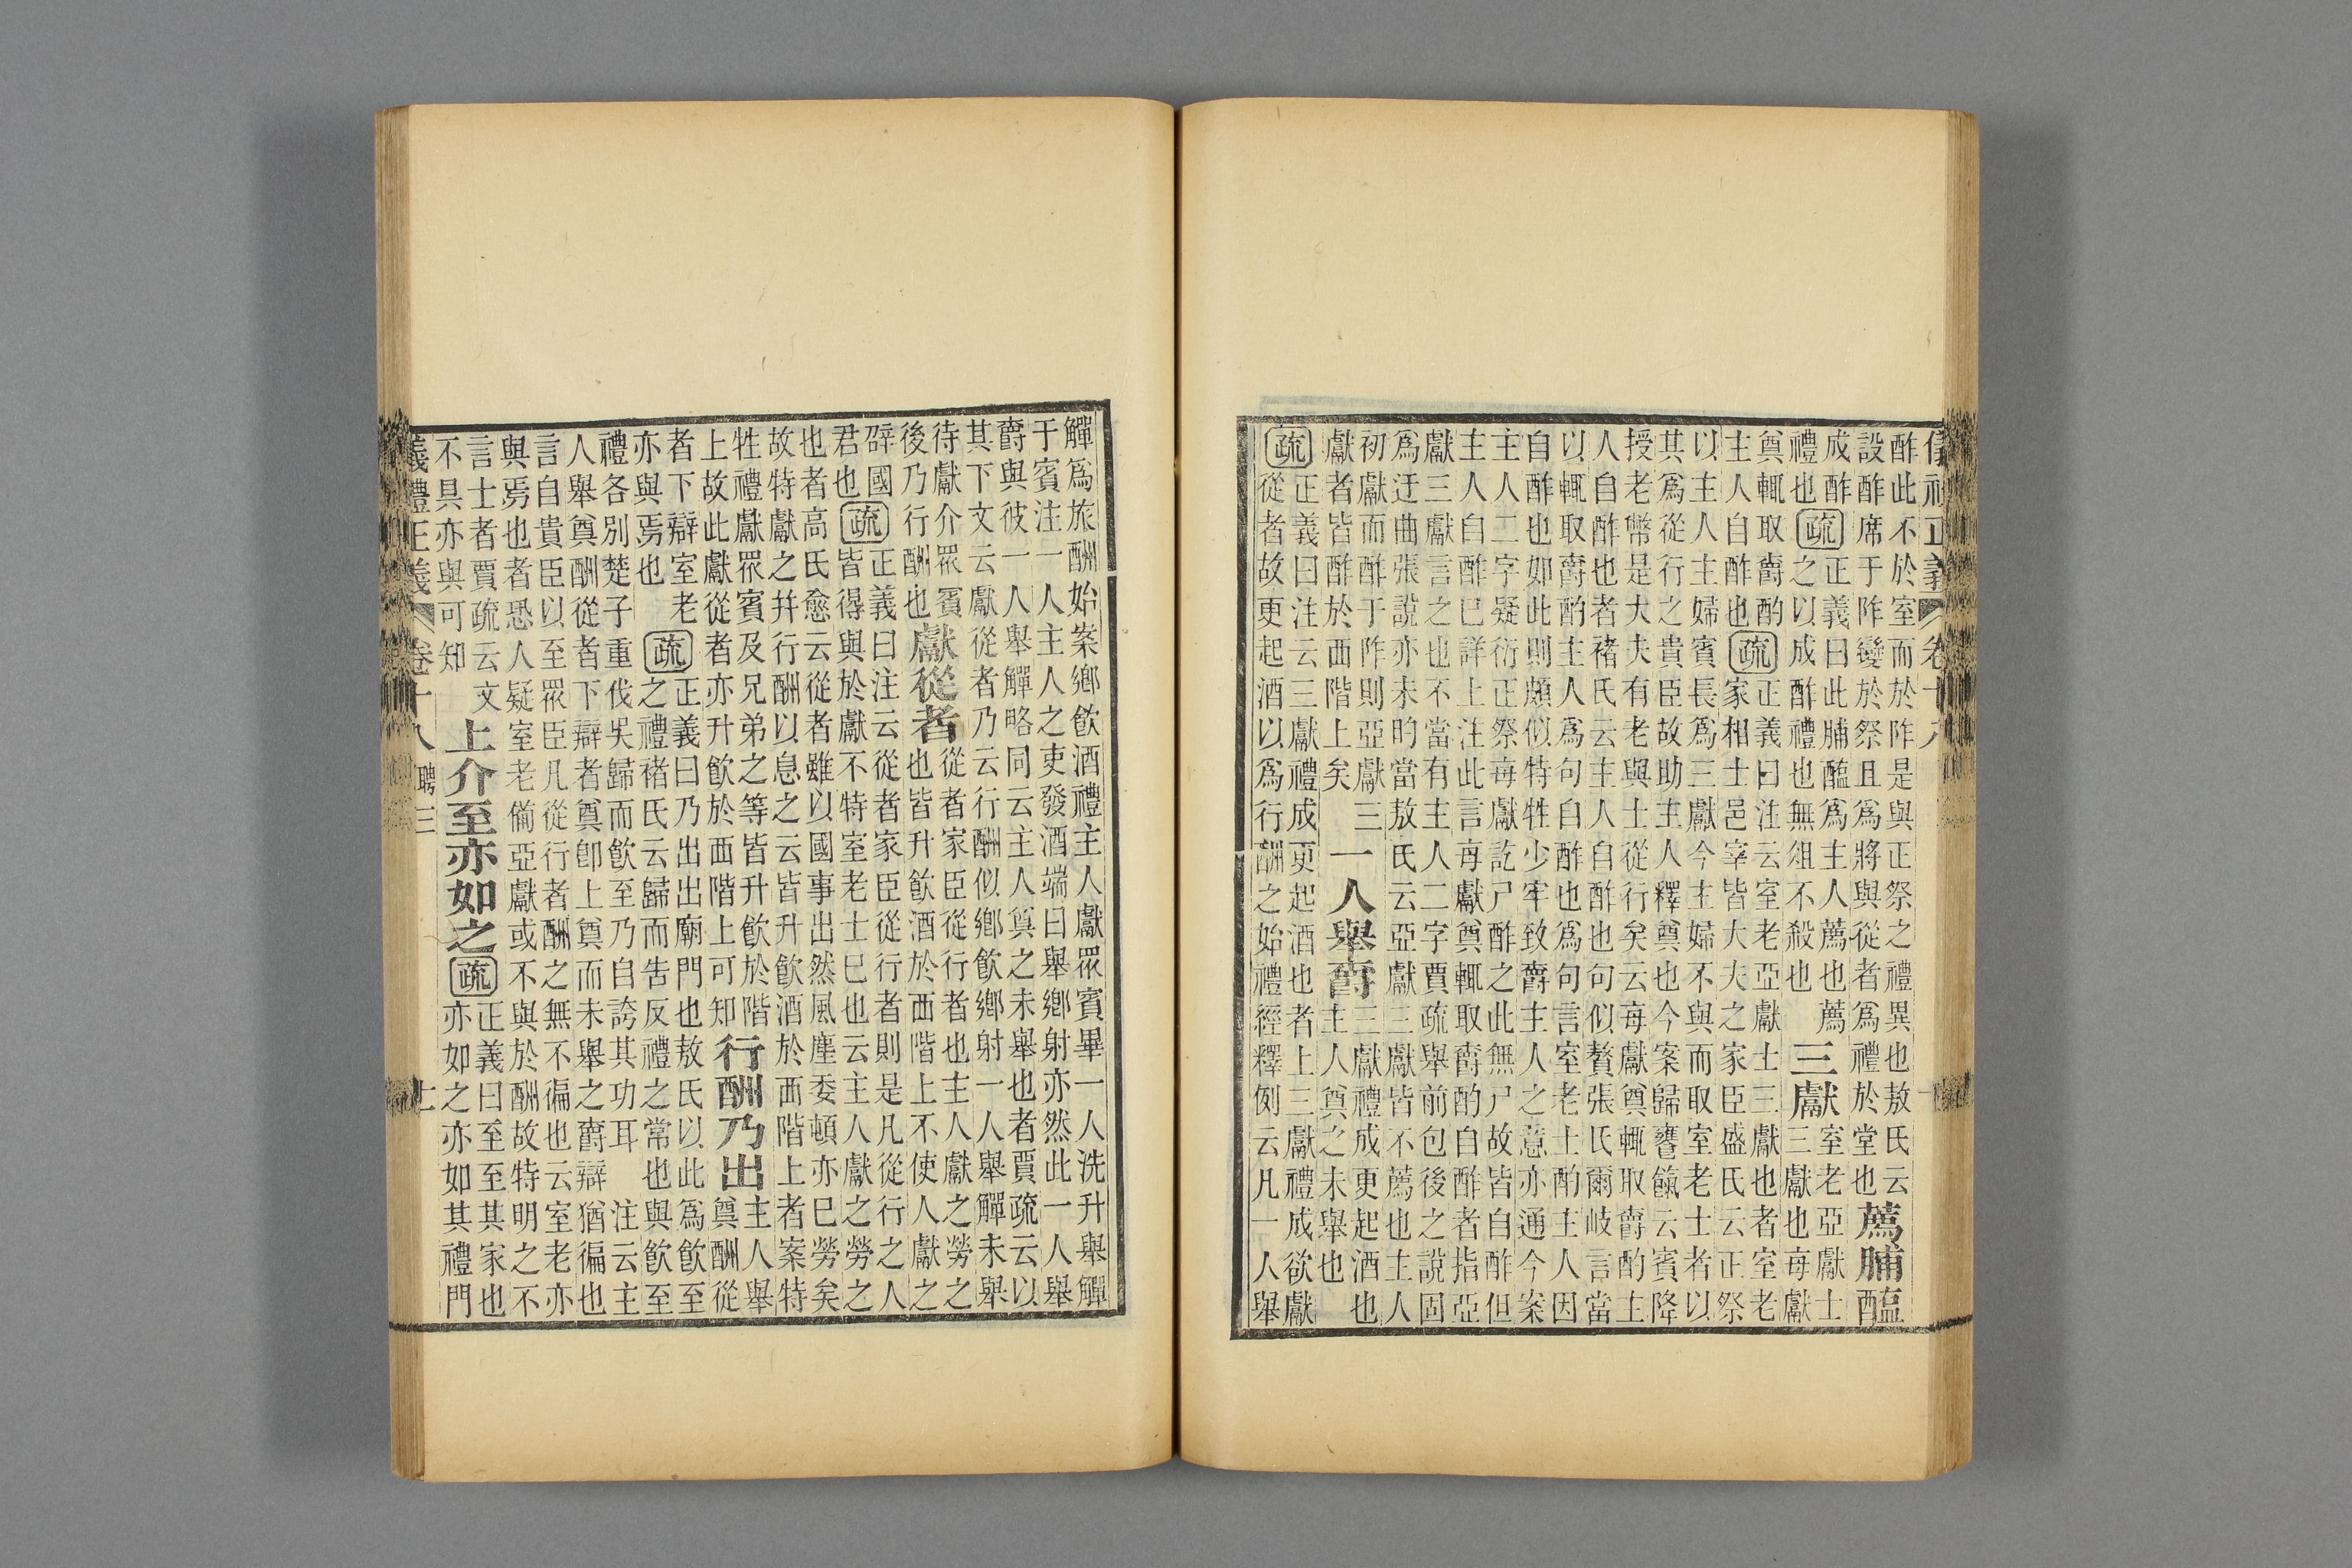 儀禮正義 卷十八
酢此不於室而於阼是與正祭之禮異也敖氏云
設酢席于阼變於祭且爲將與從者爲禮於堂也
薦脯醢
成酢
禮也
疏
正義曰此脯醢爲主人薦也薦
之以成酢禮也無俎不殺也
三獻
室老亞獻士
三獻也每獻
奠輒取爵酌
主人自酢也
疏
正義曰注云室老亞獻士三獻也者室老
家相士邑宰皆大夫之家臣盛氏云正祭
以主人主婦賓長爲三獻今主婦不與而取室老士者以
其爲從行之貴臣故助主人釋奠也今案歸饔餼云賓降
授老幣是大夫有老與士從行矣云每獻奠輒取爵酌主
人自酢也者褚氏云主人自酢也句似贅張氏爾岐言當
以輒取爵酌主人爲句自酢也爲句言室老士酌主人因
自酢也如此則頗似特牲少牢致爵主人之意亦通今案
主人二字疑衍正祭每獻訖尸酢之此無尸故皆自酢但
主人自酢已詳上注此言每獻奠輒取爵酌自酢者指亞
獻三獻言之也不當有主人二字賈疏舉前包後之說固
爲迂曲張說亦未的當敖氏云亞獻三獻皆不薦也主人
初獻而酢于阼則亞獻三
獻者皆酢於西階上矣
一人舉爵
三獻禮成更起酒也
主人奠之未舉也
疏
正義曰注云三獻禮成更起酒也者上三獻禮成欲獻
從者故更起酒以爲行酬之始禮經釋例云凡一人舉
觶爲旅酬始案鄉飲酒禮主人獻眾賓畢一人洗升舉觶
于賓注一人主人之吏發酒端曰舉鄉射亦然此一人舉
爵與彼一人舉觶略同云主人奠之未舉也者賈疏云以
其下文云獻從者乃云行酬似鄉飲鄉射一人舉觶未舉
待獻介眾賓
後乃行酬也
獻從者
從者家臣從行者也主人獻之勞之
也皆升飲酒於西階上不使人獻之
辟國
君也
疏
正義曰注云從者家臣從行者則是凡從行之人
皆得與於獻不特室老士已也云主人獻之勞之
也者高氏愈云從者雖以國事出然風塵委頓亦已勞矣
故特獻之并行酬以息之云皆升飲酒於西階上者案特
牲禮獻眾賓及兄弟之等皆升飲於階
上故此獻從者亦升飲於西階上可知
行酬乃出
主人舉
奠酬從
者下辯室老
亦與焉也
疏
正義曰乃出出廟門也敖氏以此爲飲至
之禮褚氏云歸而告反禮之常也與飲至
禮各別楚子重伐吳歸而飲至乃自誇其功耳 注云主
人舉奠酬從者下辯者奠卽上奠而未舉之爵辯猶徧也
言自貴臣以至眾臣凡從行者酬之無不徧也云室老亦
與焉也者恐人疑室老僃亞獻或不與於酬故特明之不
言士者賈疏云文
不具亦與可知
上介至亦如之
疏
正義曰至至其家也
亦如之亦如其禮門
義禮正義 卷十八 聘三